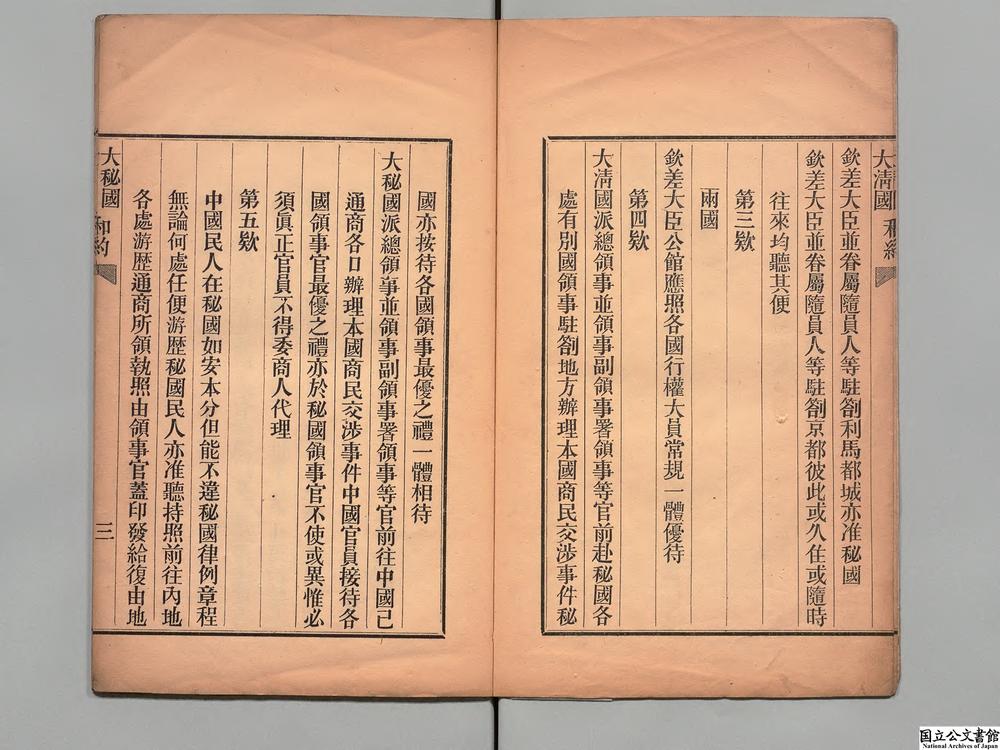 大清國 和約
欽差大臣並眷屬隨員人等駐劄利馬都城亦准秘國
欽差大臣並眷屬隨員人等駐劄京都彼此或久住或隨時
往來均聽其便
第三欵
兩國
欽差大臣公館應照各國行權大員常規一體優待
第四欵
大清國派總領事並領事副領事署領事等官前赴秘國各
處有別國領事駐劄地方辦理本國商民交涉事件秘
國亦按待各國領事最優之禮一體相待
大秘國派總領事並領事副領事署領事等官前往中國已
通商各口辦理本國商民交涉事件中國官員接待各
國領事官最優之禮亦於秘國領事官不使或異惟必
須眞正官員不得委商人代理
第五欵
中國民人在秘國如安本分但能不違秘國律例章程
無論何處任便游歷秘國民人亦准聽持照前往內地
各處游歷通商所領執照由領事官蓋印發給復由地
大秘國 和約 三
国立公文書館
National Archives of Japan